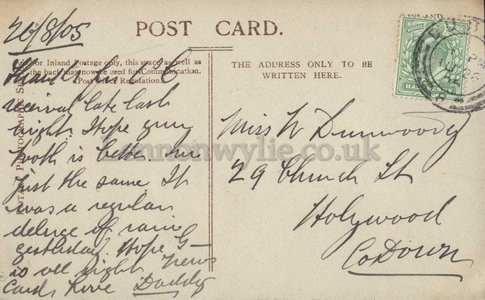 26/8/05
POST CARD.
For Inland Postage only, this space as well as
the back may now be used for Communication.
(Post Office Regulation.)
THE ADDRESS ONLY TO BE
WRITTEN HERE.
Thanks for P.C.
received late last
night. Hope your
tooth is better. Im
just the same. It
was a regular
deluge of rain
yesterday Hope G
is all right. News
Cards here Daddy
Miss W Dunwoody
29 Church St
Holywood
Co Down